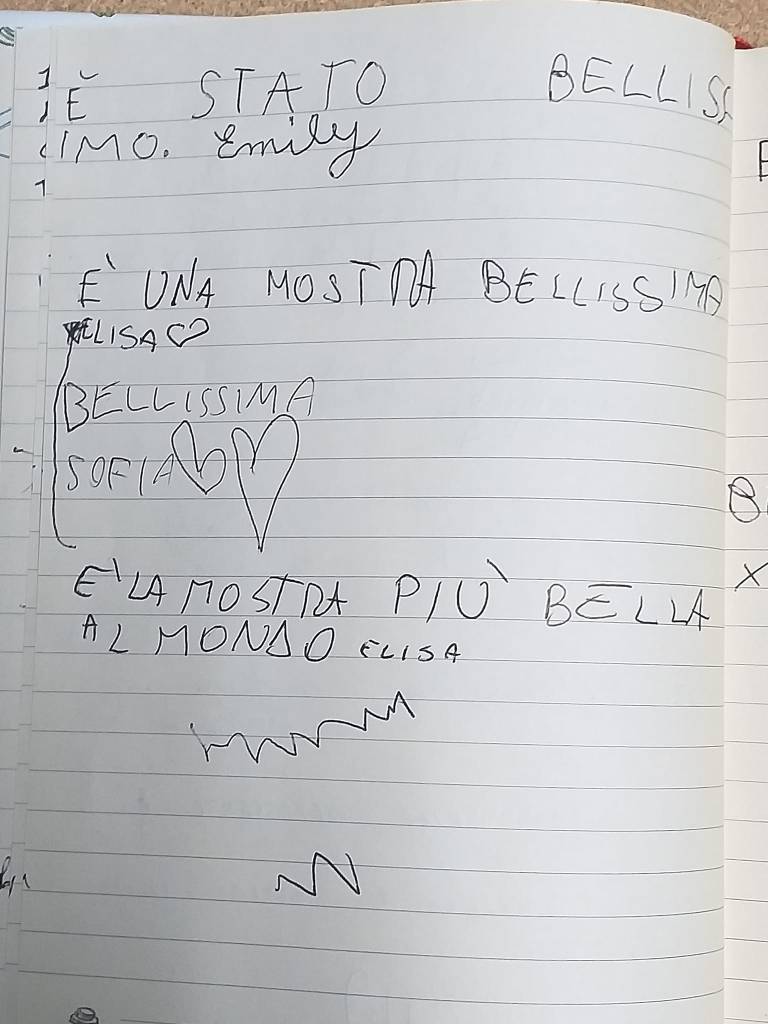 È STATO BELLISS
IMO. Emily
E' UNA MOSTRA BELLISSIMA
ELISA
BELLISSIMA
SOFIA
E' LA MOSTRA PIÙ BELLA
AL MONDO ELISA